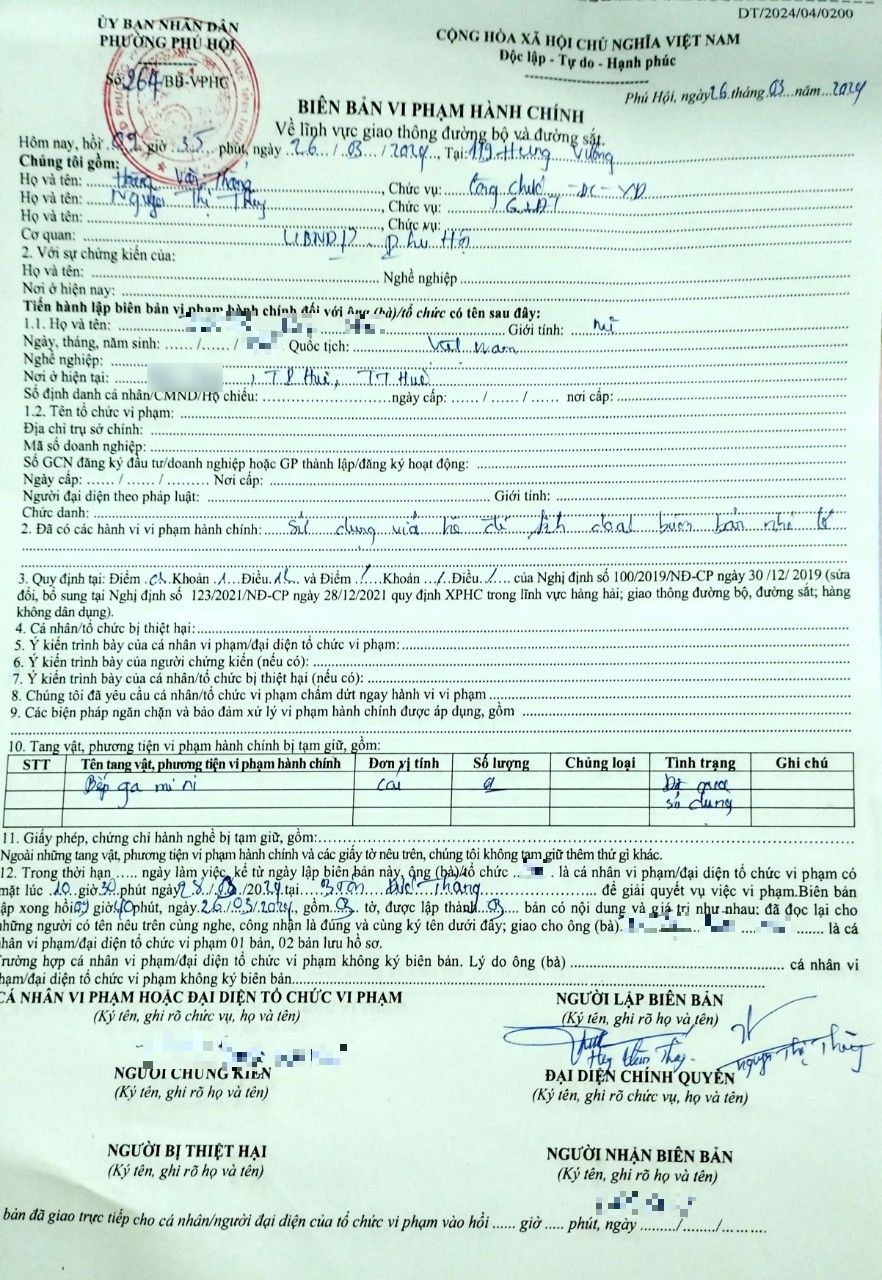 DT/2024/04/0200
ỦY BAN NHÂN DÂN
PHƯỜNG PHÚ HỘI
CỘNG HÒA XÃ HỘI CHỦ NGHĨA VIỆT NAM
Độc lập - Tự do - Hạnh phúc
Số: 264/BB-VPHC
Phú Hội, ngày 26 tháng 03 năm 2024
BIÊN BẢN VI PHẠM HÀNH CHÍNH
Về lĩnh vực giao thông đường bộ và đường sắt.
Hôm nay, hồi 09 giờ 35 phút, ngày 26 / 03 / 2024, Tại: 119 Hùng Vương
Chúng tôi gồm:
Họ và tên: Văn , Chức vụ: Công chức ĐC - XD
Họ và tên: Nguyễn Thị Thủy , Chức vụ:
Họ và tên: , Chức vụ:
Cơ quan: UBND P. Phú Hội
2. Với sự chứng kiến của:
Họ và tên: Nghề nghiệp
Nơi ở hiện nay:
Tiến hành lập biên bản vi phạm hành chính đối với ông (bà)/tổ chức có tên sau đây:
1.1. Họ và tên: Giới tính: Nữ
Ngày, tháng, năm sinh: ....../....../ Quốc tịch: Việt Nam
Nghề nghiệp:
Nơi ở hiện tại: , TP Huế, TT Huế
Số định danh cá nhân/CMND/Hộ chiếu: ngày cấp: ...... / ...... / ...... nơi cấp:
1.2. Tên tổ chức vi phạm:
Địa chỉ trụ sở chính:
Mã số doanh nghiệp:
Số GCN đăng ký đầu tư/doanh nghiệp hoặc GP thành lập/đăng ký hoạt động:
Ngày cấp: ...... / ...... / ......... Nơi cấp:
Người đại diện theo pháp luật: Giới tính:
Chức danh:
2. Đã có các hành vi vi phạm hành chính: Sử dụng vỉa hè để buôn bán nhỏ lẻ
3. Quy định tại: Điểm a Khoản 1 Điều 12 và Điểm / Khoản / Điều / của Nghị định số 100/2019/NĐ-CP ngày 30 /12/ 2019 (sửa
đổi, bổ sung tại Nghị định số 123/2021/NĐ-CP ngày 28/12/2021 quy định XPHC trong lĩnh vực hàng hải; giao thông đường bộ, đường sắt; hàng
không dân dụng).
4. Cá nhân/tổ chức bị thiệt hại:
5. Ý kiến trình bày của cá nhân vi phạm/đại diện tổ chức vi phạm:
6. Ý kiến trình bày của người chứng kiến (nếu có):
7. Ý kiến trình bày của cá nhân/tổ chức bị thiệt hại (nếu có):
8. Chúng tôi đã yêu cầu cá nhân/tổ chức vi phạm chấm dứt ngay hành vi vi phạm
9. Các biện pháp ngăn chặn và bảo đảm xử lý vi phạm hành chính được áp dụng, gồm
10. Tang vật, phương tiện vi phạm hành chính bị tạm giữ, gồm:
STT Tên tang vật, phương tiện vi phạm hành chính Đơn vị tính Số lượng Chủng loại Tình trạng Ghi chú
Bếp ga mi ni cái Đã qua
sử dụng
11. Giấy phép, chứng chỉ hành nghề bị tạm giữ, gồm:
Ngoài những tang vật, phương tiện vi phạm hành chính và các giấy tờ nêu trên, chúng tôi không tạm giữ thêm thứ gì khác.
12. Trong thời hạn ..... ngày làm việc, kể từ ngày lập biên bản này, ông (bà)/tổ chức là cá nhân vi phạm/đại diện tổ chức vi phạm có
mặt lúc 10 giờ 30 phút ngày 28 / 03 /2024 tại Thắng để giải quyết vụ việc vi phạm.Biên bản
lập xong hồi 09 giờ 40 phút, ngày 26/03/2024, gồm 03 tờ, được lập thành 03 bản có nội dung và giá trị như nhau: đã đọc lại cho
những người có tên nêu trên cùng nghe, công nhận là đúng và cùng ký tên dưới đây; giao cho ông (bà). là cá
nhân vi phạm/đại diện tổ chức vi phạm 01 bản, 02 bản lưu hồ sơ.
Trường hợp cá nhân vi phạm/đại diện tổ chức vi phạm không ký biên bản. Lý do ông (bà) cá nhân vi
phạm/đại diện tổ chức vi phạm không ký biên bản
CÁ NHÂN VI PHẠM HOẶC ĐẠI DIỆN TỔ CHỨC VI PHẠM
(Ký tên, ghi rõ chức vụ, họ và tên)
NGƯỜI LẬP BIÊN BẢN
(Ký tên, ghi rõ họ và tên)
NGƯỜI CHỨNG KIẾN
(Ký tên, ghi rõ họ và tên)
ĐẠI DIỆN CHÍNH QUYỀN
(Ký tên, ghi rõ chức vụ, họ và tên)
NGƯỜI BỊ THIỆT HẠI
(Ký tên, ghi rõ họ và tên)
NGƯỜI NHẬN BIÊN BẢN
(Ký tên, ghi rõ họ và tên)
bản đã giao trực tiếp cho cá nhân/người đại diện của tổ chức vi phạm vào hồi ...... giờ ..... phút, ngày ........./......./..........